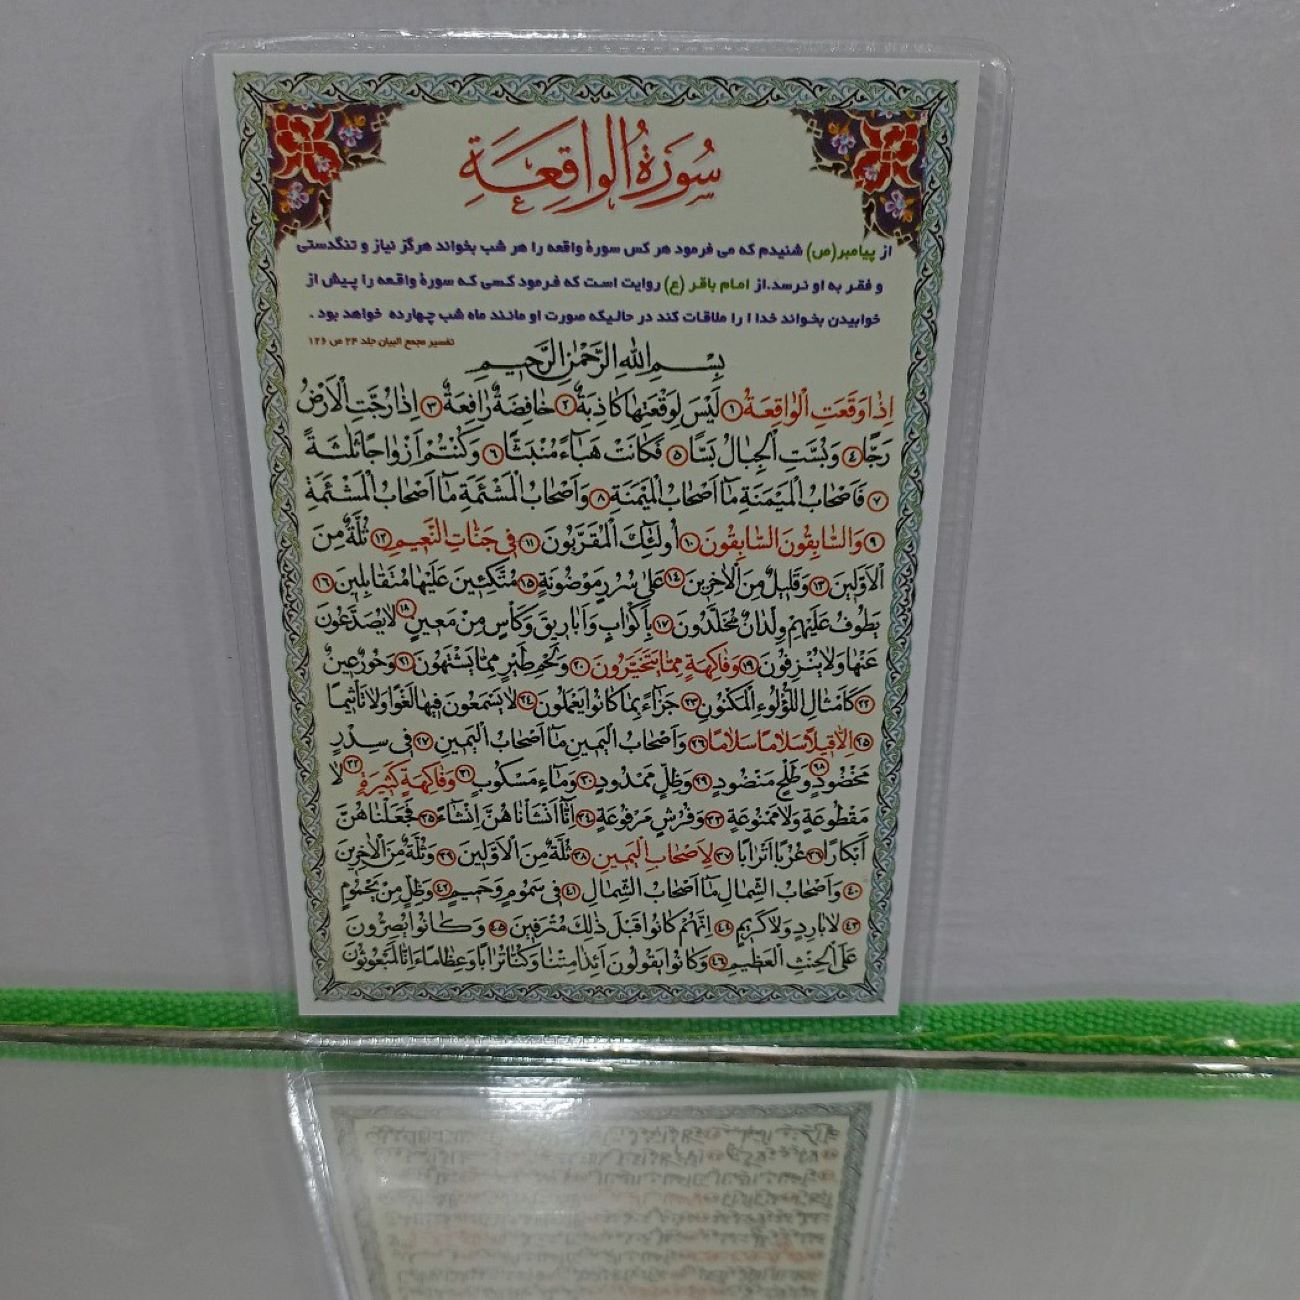 سُورَةُ الْواقِعَةِ
از پیامبر(ص) شنیدم که می فرمود هر کس سورهٔ واقعه را هر شب بخواند هرگز نیاز و تنگدستی
و فقر به او نرسد.از امام باقر (ع) روایت است که فرمود کسی که سورهٔ واقعه را پیش از
خوابیدن بخواند خدا ا را ملاقات کند در حالیکه صورت او مانند ماه شب چهارده خواهد بود .
تفسیر مجمع البیان جلد ۲۴ ص ۱۲۶
بِسْمِ اللهِ الرَّحْمٰنِ الرَّحيمِ
اِذٰا وَقَعَتِ الْوٰاقِعَةُ ۱ لَيْسَ لِوَقْعَتِهٰا كٰاذِبَةٌ ۲ خٰافِضَةٌ رٰافِعَةٌ ۳ اِذٰا رُجَّتِ الْاَرْضُ
رَجًّا ۴ وَ بُسَّتِ الْجِبٰالُ بَسًّا ۵ فَكٰانَتْ هَبٰٓاءً مُنْبَثًّا ۶ وَ كُنْتُمْ اَزْوٰاجًا ثَلٰثَةً
۷ فَاَصْحٰابُ الْمَيْمَنَةِ مٰٓا اَصْحٰابُ الْمَيْمَنَةِ ۸ وَ اَصْحٰابُ الْمَشْئَمَةِ مٰٓا اَصْحٰابُ الْمَشْئَمَةِ
۹ وَ السّٰابِقُونَ السّٰابِقُونَ ۱۰ اُولٰٓئِكَ الْمُقَرَّبُونَ ۱۱ فى جَنّٰاتِ النَّعيمِ ۱۲ ثُلَّةٌ مِنَ
الْاَوَّلينَ ۱۳ وَ قَليلٌ مِنَ الْاٰخِرينَ ۱۴ عَلىٰ سُرُرٍ مَوْضُونَةٍ ۱۵ مُتَّكِئينَ عَلَيْهٰا مُتَقٰابِلينَ ۱۶
يَطُوفُ عَلَيْهِمْ وِلْدٰانٌ مُخَلَّدُونَ ۱۷ بِاَكْوٰابٍ وَ اَبٰاريقَ وَ كَأْسٍ مِنْ مَعينٍ ۱۸ لٰا يُصَدَّعُونَ
عَنْهٰا وَ لٰا يُنْزِفُونَ ۱۹ وَ فٰاكِهَةٍ مِمّٰا يَتَخَيَّرُونَ ۲۰ وَ لَحْمِ طَيْرٍ مِمّٰا يَشْتَهُونَ ۲۱ وَ حُورٌ عينٌ
۲۲ كَاَمْثٰالِ اللُّؤْلُوءِ الْمَكْنُونِ ۲۳ جَزٰٓاءً بِمٰا كٰانُوا يَعْمَلُونَ ۲۴ لٰا يَسْمَعُونَ فيهٰا لَغْوًا وَ لٰا تَأْثيمًا
۲۵ اِلّٰا قيلًا سَلٰامًا سَلٰامًا ۲۶ وَ اَصْحٰابُ الْيَمينِ مٰٓا اَصْحٰابُ الْيَمينِ ۲۷ فى سِدْرٍ
مَخْضُودٍ ۲۸ وَ طَلْحٍ مَنْضُودٍ ۲۹ وَ ظِلٍّ مَمْدُودٍ ۳۰ وَ مٰٓاءٍ مَسْكُوبٍ ۳۱ وَ فٰاكِهَةٍ كَثيرَةٍ ۳۲ لٰا
مَقْطُوعَةٍ وَ لٰا مَمْنُوعَةٍ ۳۳ وَ فُرُشٍ مَرْفُوعَةٍ ۳۴ اِنّٰٓا اَنْشَأْنٰاهُنَّ اِنْشٰٓاءً ۳۵ فَجَعَلْنٰاهُنَّ
اَبْكٰارًا ۳۶ عُرُبًا اَتْرٰابًا ۳۷ لِاَصْحٰابِ الْيَمينِ ۳۸ ثُلَّةٌ مِنَ الْاَوَّلينَ ۳۹ وَ ثُلَّةٌ مِنَ الْاٰخِرينَ
۴۰ وَ اَصْحٰابُ الشِّمٰالِ مٰٓا اَصْحٰابُ الشِّمٰالِ ۴۱ فى سَمُومٍ وَ حَميمٍ ۴۲ وَ ظِلٍّ مِنْ يَحْمُومٍ
۴۳ لٰا بٰارِدٍ وَ لٰا كَريمٍ ۴۴ اِنَّهُمْ كٰانُوا قَبْلَ ذٰلِكَ مُتْرَفينَ ۴۵ وَ كٰانُوا يُصِرُّونَ
عَلَى الْحِنْثِ الْعَظيمِ ۴۶ وَ كٰانُوا يَقُولُونَ اَئِذٰا مِتْنٰا وَ كُنّٰا تُرٰابًا وَ عِظٰامًا ءَاِنّٰا لَمَبْعُوثُونَ